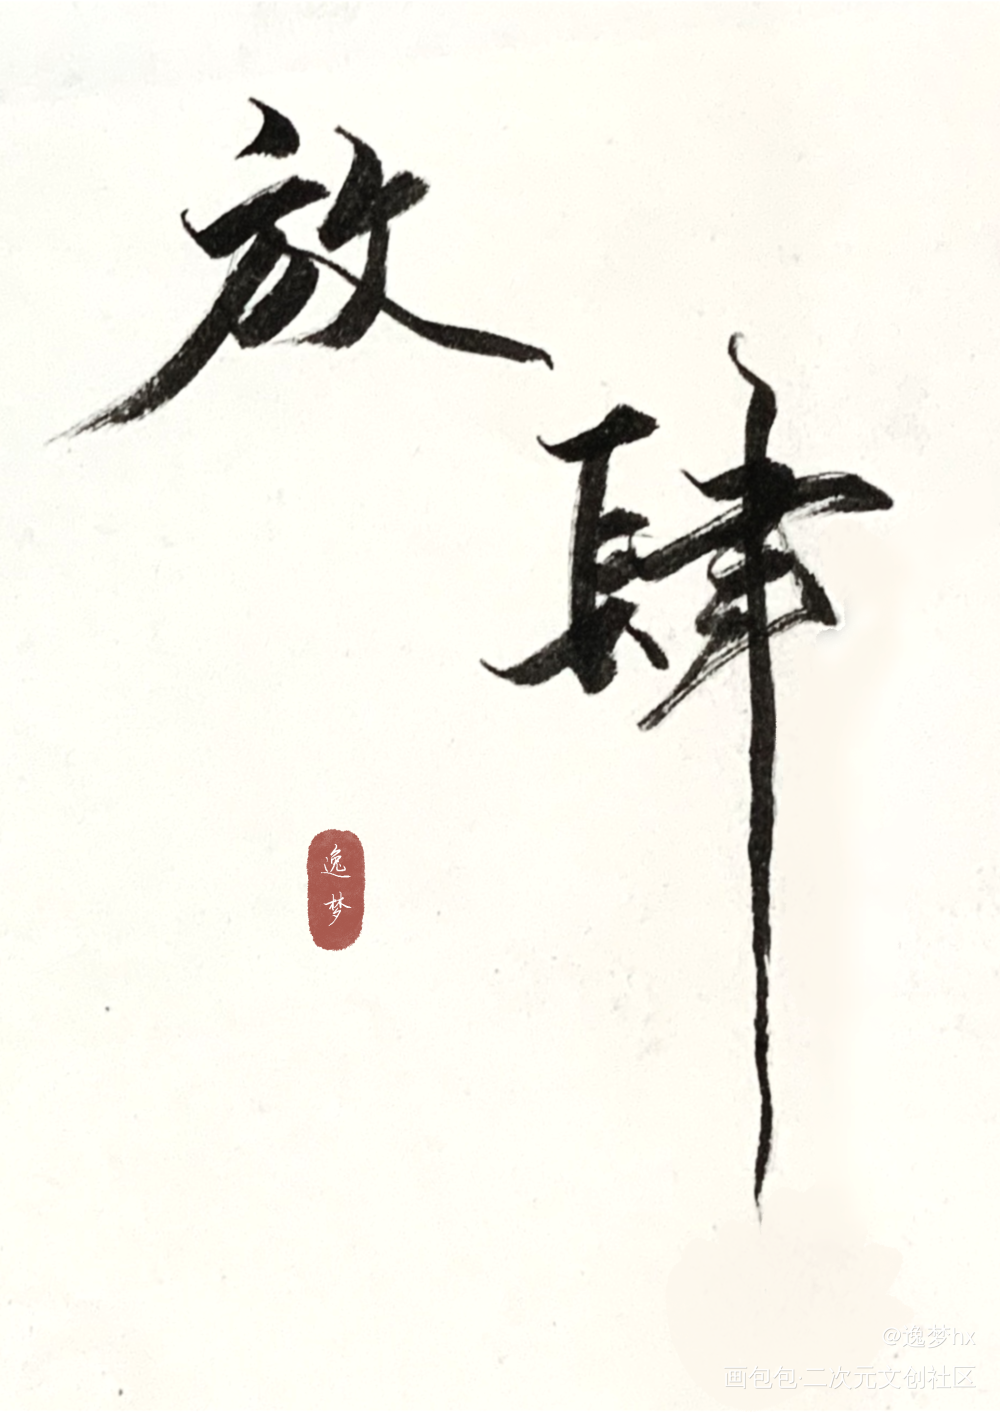 放肆
逸梦
@逸梦hx
画包包·二次元文创社区